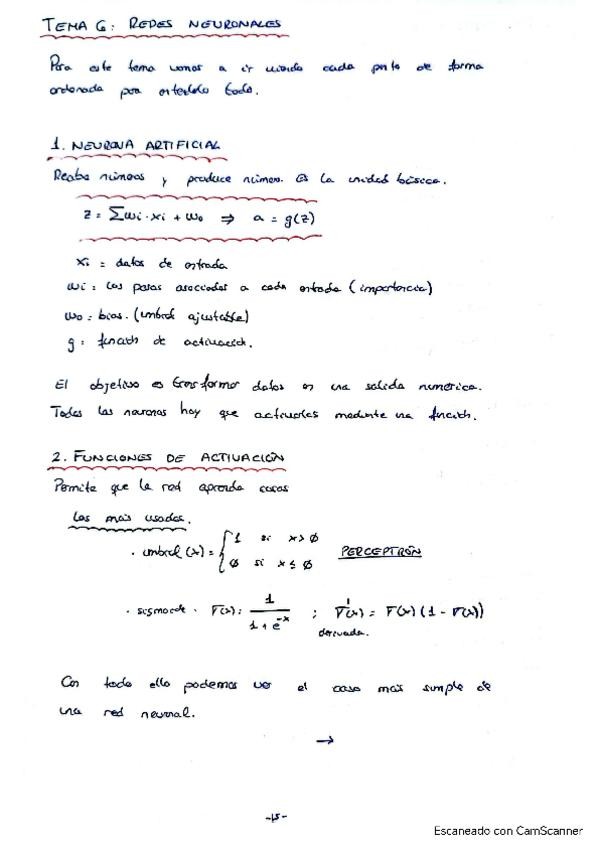 TEMA 6: REDES NEURONALES
Para este tema vamos a ir viendo cada parte de forma
ordenada para entenderlo todo.
1. NEURONA ARTIFICIAL
Recibe números y produce números. Es la unidad básica.
z = Σwi·xi + w0 ⇒ a = g(z)
xi = datos de entrada
wi = los pesos asociados a cada entrada (importancia)
w0 = bias. (umbral ajustable)
g = función de activación.
El objetivo es transformar datos en una salida numérica.
Todas las neuronas hay que activarlas mediante una función.
2. FUNCIONES DE ACTIVACIÓN
Permite que la red aprenda cosas
Las más usadas.
· umbral (x) = { 1 si x > 0
0 si x ≤ 0 PERCEPTRÓN
· sigmoide · σ(x) = 1 / (1 + e^-x) ; σ'(x) = σ(x) (1 - σ(x))
derivada.
Con todo ello podemos ver el caso más simple de
una red neuronal.
→
-15-
Escaneado con CamScanner